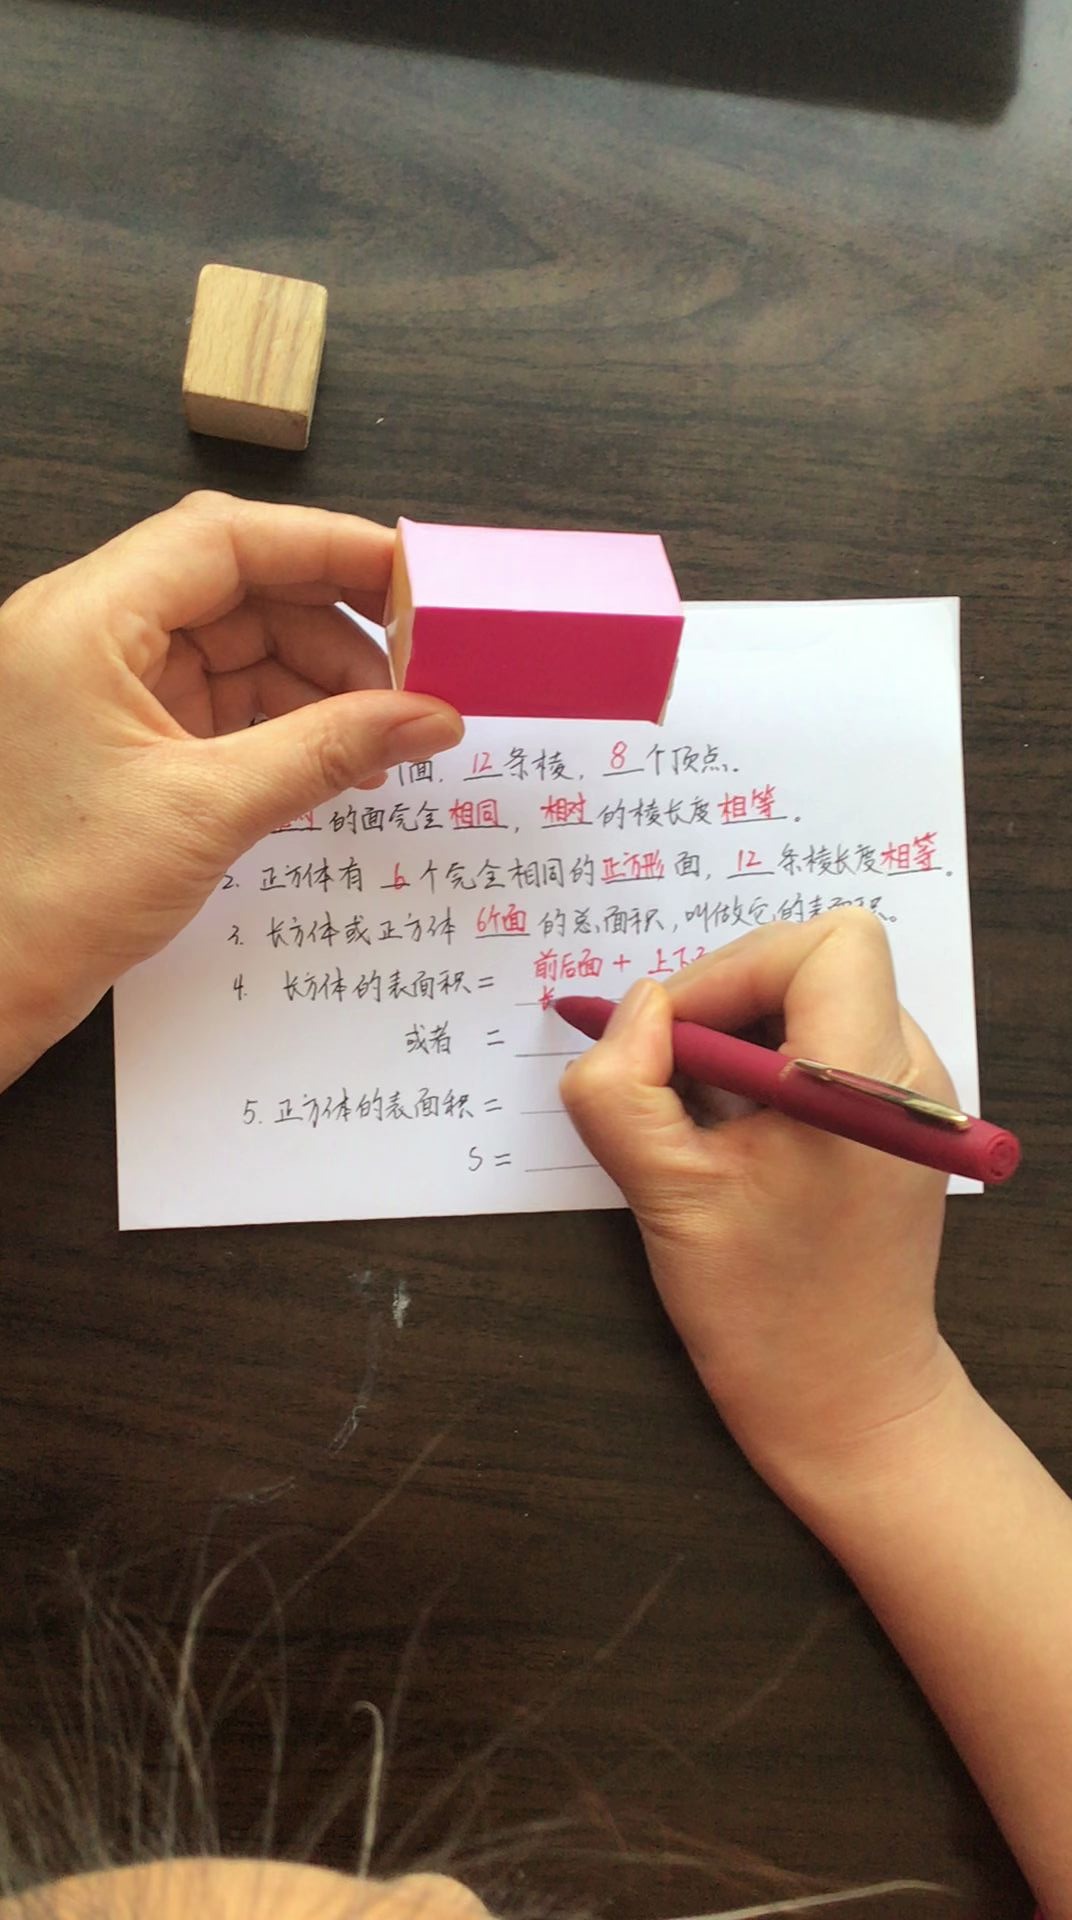 面，12条棱，8个顶点。
的面完全相同，相对的棱长度相等。
2. 正方体有6个完全相同的正方形面，12条棱长度相等。
3. 长方体或正方体6个面的总面积，叫做它的表面积。
前后面 + 上下
4. 长方体的表面积 = 长
或者 =
5. 正方体的表面积 =
S =